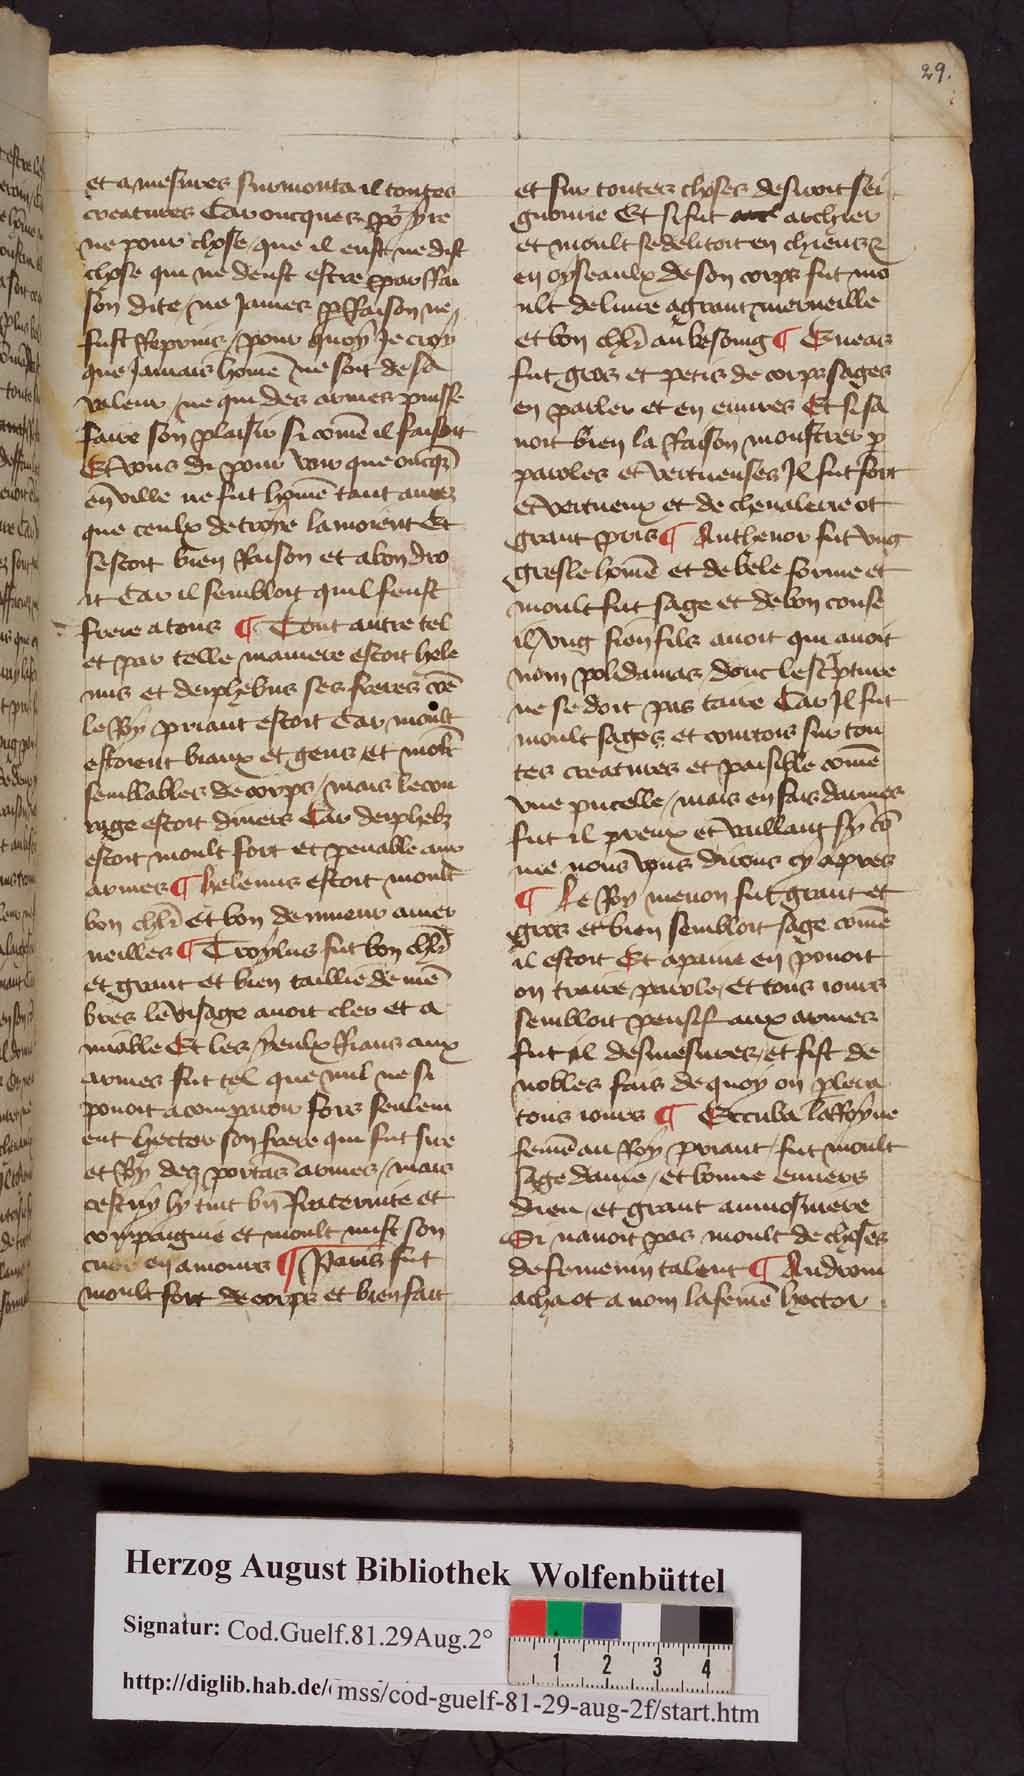 29.
et a mesures surmonta il toutes
creatures Car oncques por yre
ne pour chose que il eust ne dist
chose qui ne deust estre par rai
son dite ne James p raison ne
fust reprins / pour quoy Je croy
que Jamais home ne soit de sa
valeur / ne qui des armes puisse
faire son plaisir si come il faisoit
Et vous di pour voir que oncqz
en ville ne fut home tant amez
que ceulx de troye lamoient Et
sestoit bien raison et a bon dro
it Car il sembloit quil feust
frere a tous ¶ Tout autre tel
et par telle maniere estoit hele
nus et deyphebus ses freres coe
le Roy priant estoit Car moult
estoient biaux et gens et molt
semblables de corps / mais le cou
rage estoit divers Car deyphebz
estoit moult fort et penable aux
armes ¶ helenus estoit moult
bon chlr et bon devineur a mer
veilles ¶ Troylus fut bon chlr
et grant et bien taillie de me
bres le visage avoit cler et a
miable Et les yeulx rians aux
armes fut tel que nul ne si
povoit acomparoir fors seulem
ent hector son frere qui fut sire
et Roy des portas armes / mais
cestuy ly tint bn fraternite et
compaignie et moult mist son
cuer en amours ¶ Paris fut
moult fort de corps et bien fait
et sur toutes choses desiroit sei
gnourie Et si fut archier
et moult se delitoit en chiens z
en oyseaulx de son corps fut mo
ult delivre a grant merveille
et bon chlr au besoing ¶ Eneas
fut gros et petis de corps sages
en parler et en euvres Et si sa
voit bien la raison monstrer p
paroles et vertueuses Il fut fort
et vertueux et de chevalerie ot
grant pris ¶ Anthenor fut ung
gresle home et de bele forme et
moult fut sage et de bon conse
il / ung sien fils avoit qui avoit
nom polidamas / donc lescripture
ne se doit pas taire Car Il fut
moult sages et courtois sur tou
tes creatures et paisible come
une pucelle / mais en fais darmes
fut il preux et vaillant sy co
me nous vous dirons cy apres
¶ Le Roy menon fut grant et
gros et bien sembloit sage come
il estoit Et a paine en povoit
on traire parole / et tous iours
sembloit pensif aux armes
fut il desmesures / et fist de
nobles fais de quoy on plera
tous iours ¶ Eccuba la Royne
feme au Roy priant / fut moult
sage dame / et bonne envers
dieu / et grant aumosniere
Si navoit pas moult de choses
de femenin talent ¶ Androm
acha ot a nom la feme hector
Herzog August Bibliothek Wolfenbüttel
Signatur: Cod.Guelf.81.29Aug.2°
1 2 3 4
http://diglib.hab.de/mss/cod-guelf-81-29-aug-2f/start.htm